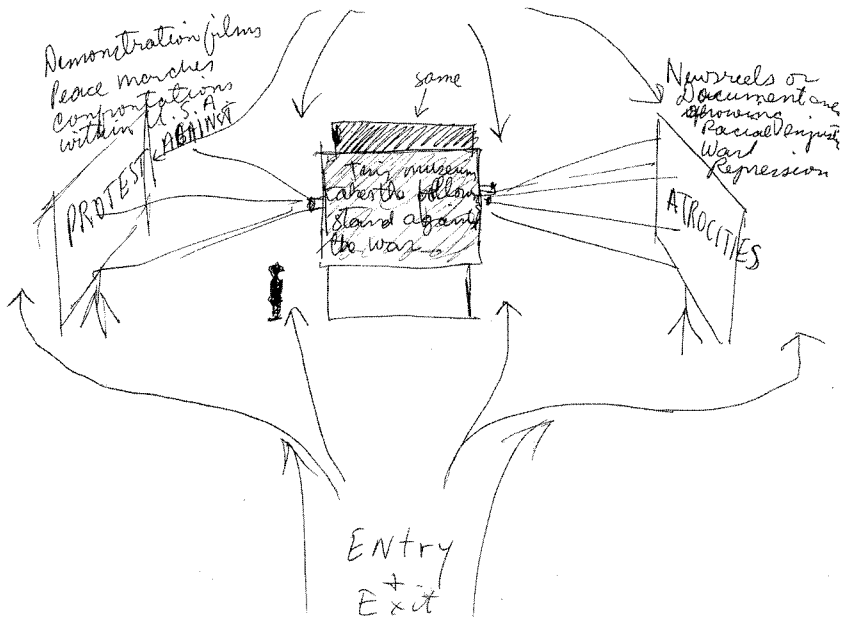 Demonstration films
Peace marches
confrontations
within U.S.A.
PROTEST AGAINST
same
This museum
takes the follow
stand against
the war
Newsreels or
Documentaries
showing
Racial Injust
War
Repression
ATROCITIES
ENtry
+
Exit